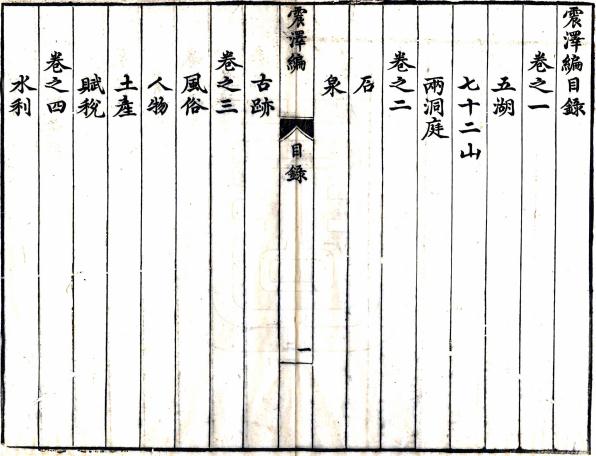 震澤編目錄
卷之一
五湖
七十二山
兩洞庭
卷之二
石
泉
震澤編
目錄
一
古跡
卷之三
風俗
人物
土產
賦稅
卷之四
水利